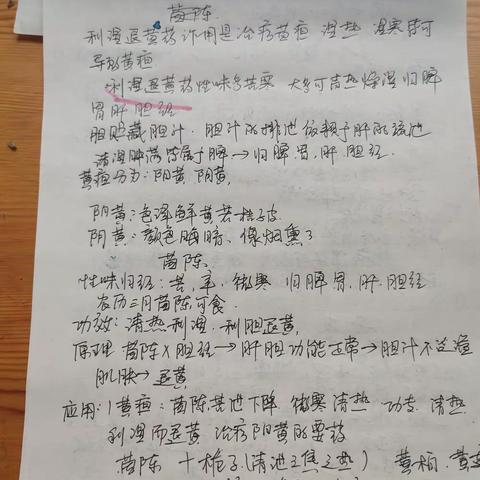 茵陈.
利湿退黄药作用是治疗黄疸 湿热 湿寒皆可
导致黄疸
利湿退黄药性味多苦寒 大多可清热燥湿归脾
胃肝胆经
胆贮藏胆汁. 胆汁的排泄依赖于肝的疏泄
诸湿肿满皆属于脾→归脾.胃.肝.胆经.
黄疸分为:阳黄.阴黄.
阳黄:色泽鲜黄若栀子皮.
阴黄:颜色晦暗、像烟熏了
茵陈.
性味归经:苦,辛,微寒 归脾胃.肝.胆经
农历三月茵陈可食.
功效:清热利湿.利胆退黄.
原理 茵陈入胆经→肝胆功能正常→胆汁不泛溢
肌肤→退黄
应用:1黄疸:茵陈苦泄下降 微寒清热 功专.清热.
利湿而退黄 治疗阳黄的要药
茵陈 十栀子(清泄三焦之热) 黄柏.